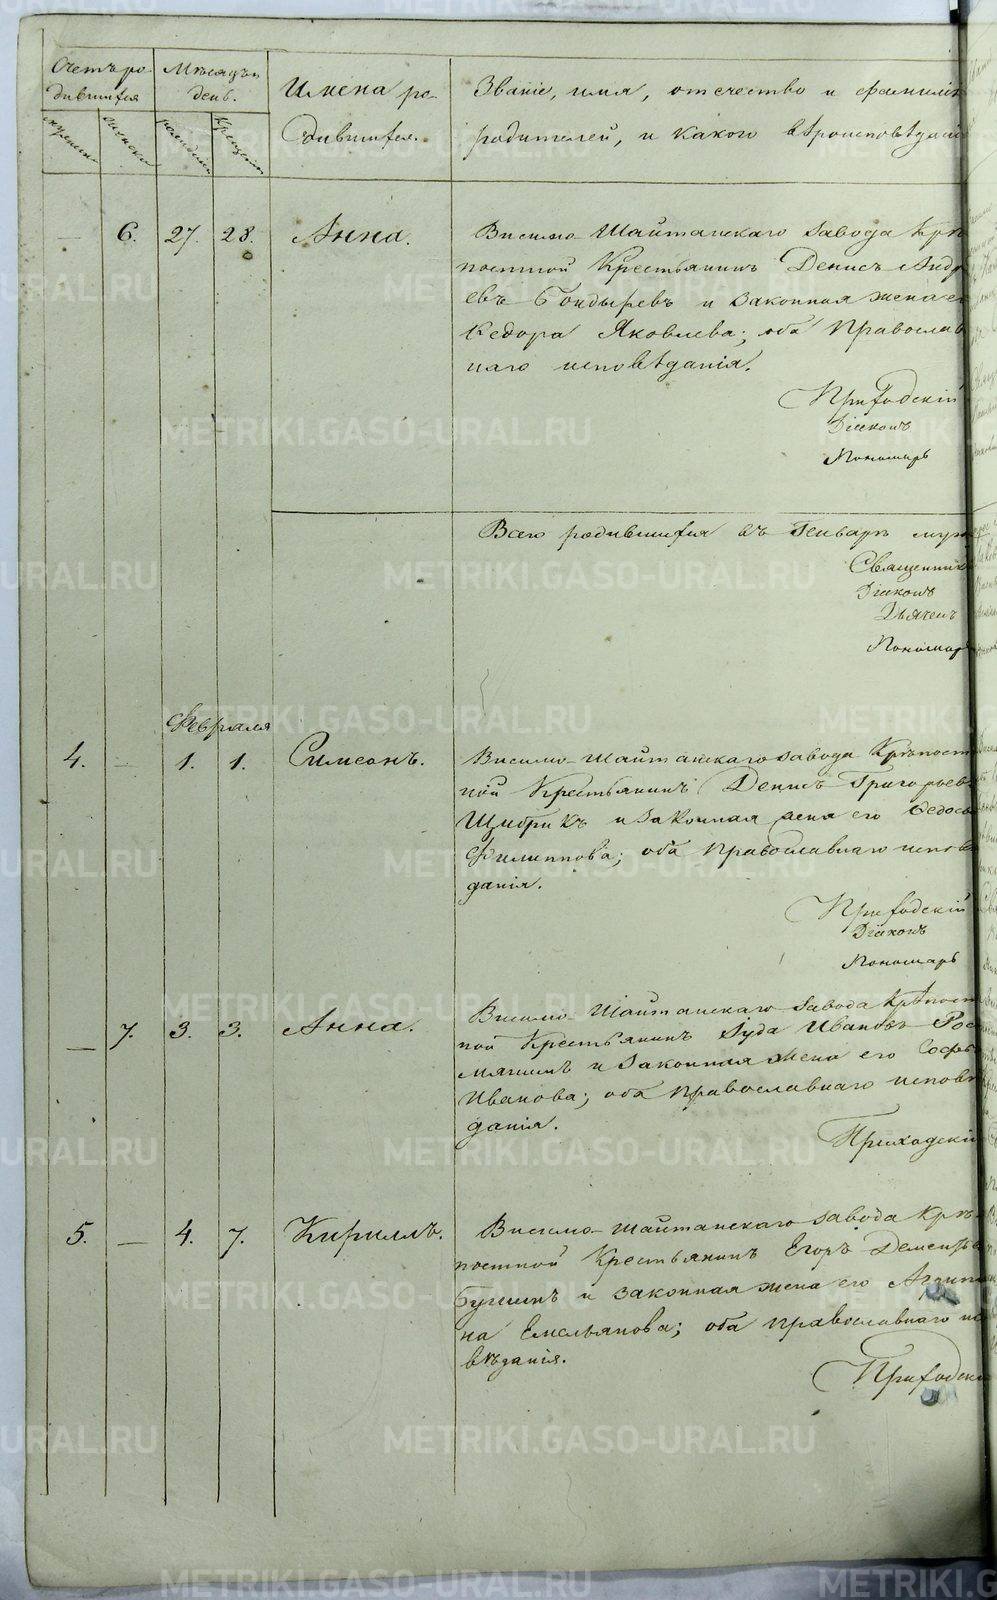 Счетъ ро-
дившихся
Мѣсяцъ и
день.
Имена ро-
дившихся.
Званіе, имя, отчество и фамилія
родителей, и какого вѣроисповѣданія
мужеска
женска
рожденія
крещенія
— 6. 27. 28. Анна. Висимо-Шайтанскаго завода Крѣ-
постной Крестьянинъ Денисъ Андре-
евъ Бондыревъ и законная жена его
Ѳедора Яковлева; оба Православ
наго исповѣданія.
Приходскій
Діаконъ
Пономарь
Всего родившихся въ Генварѣ муж
Священник
Діаконъ
Дьячекъ
Пономарь
Февраля
4. — 1. 1. Симеонъ. Висимо-Шайтанскаго завода Крѣпост
ной Крестьянинъ Денисъ Григорьевъ
и законная жена его Ѳедосья
Филиппова; оба Православнаго исповѣ
данія.
Приходскій
Діаконъ
Пономарь
— 7. 3. 3. Анна. Висимо-Шайтанскаго завода Крѣпост
ной Крестьянинъ Іуда Ивановъ Рос
мягинъ и законная жена его Софья
Иванова; оба Православнаго исповѣ
данія.
Приходскій
5. — 4. 7. Кириллъ. Висимо-Шайтанскаго завода Крѣ-
постной Крестьянинъ Егоръ Дементье
и законная жена его
на Емельянова; оба православнаго испо
вѣданія.
Приходскій
METRIKI.GASO-URAL.RU